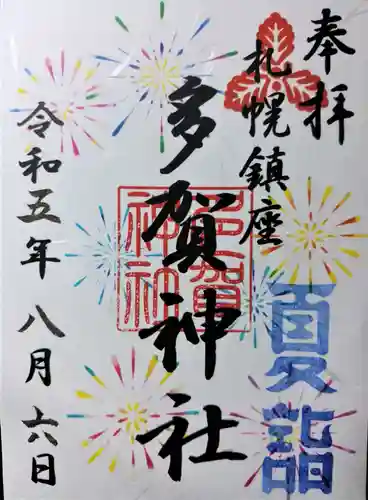 奉拝
札幌鎮座
多賀神社
多賀神社
夏詣
令和五年 八月 六日